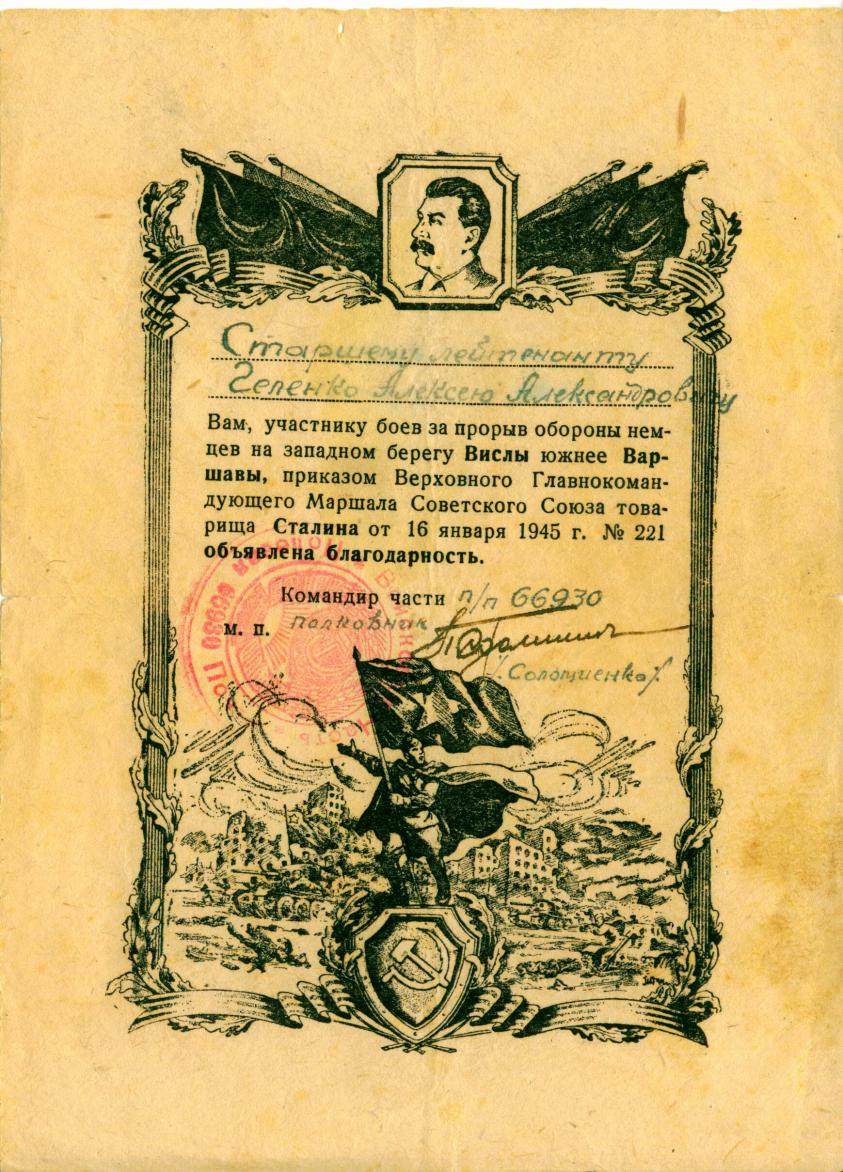 Старшему лейтенанту
Гепенко Алексею Александровичу
Вам, участнику боев за прорыв обороны нем-
цев на западном берегу Вислы южнее Вар-
шавы, приказом Верховного Главнокоман-
дующего Маршала Советского Союза това-
рища Сталина от 16 января 1945 г. № 221
объявлена благодарность.
Командир части п/п 66930
м. п. полковник
/Соломиенко/
66930